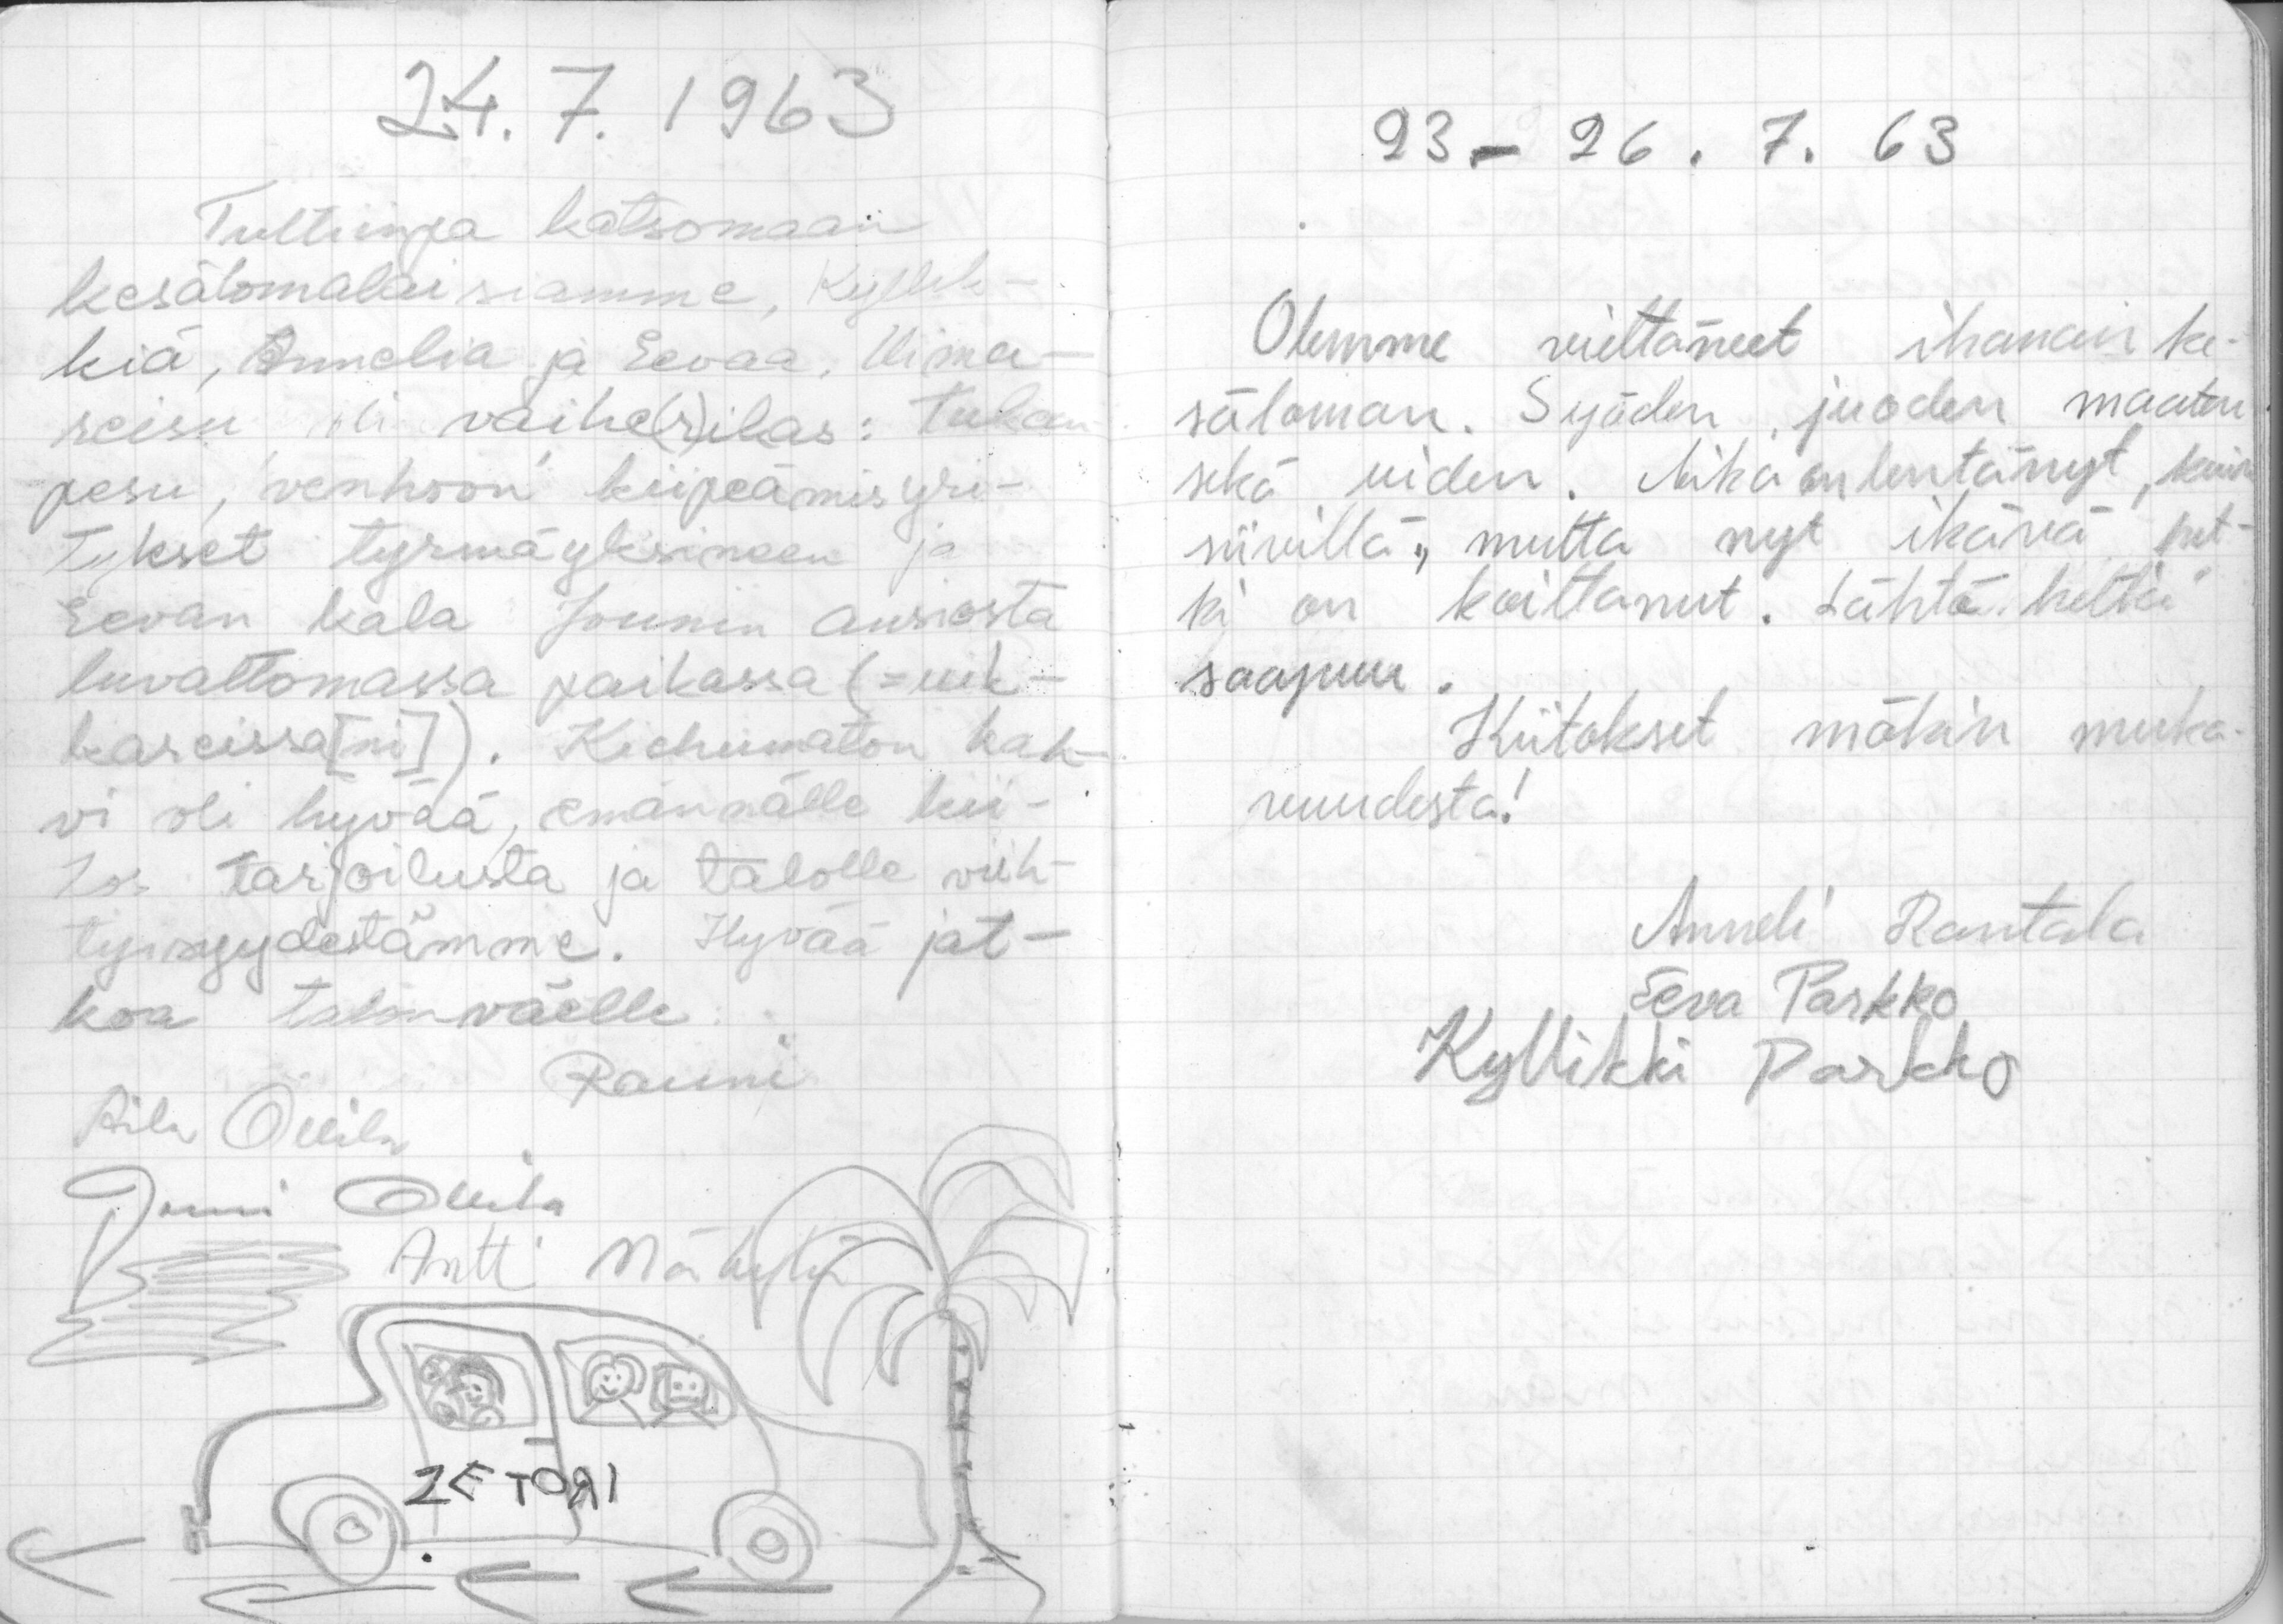 24.7.1963
Tultiinpa katsomaan
kesälomalaisiamme, Kyllik-
kiä, Annelia ja Eevaa. Uima-
reisu oli vaihe(r)ikas: tukan
pesu, venhoon kiipeämisyri-
tykset tyrmäyksineen ja
Eevan kala Jounin ansiosta
luvattomassa paikassa (=uik-
kareissa[ni]). Kiehumaton kah-
vi oli hyvää, emännälle kii-
tos tarjoilusta ja talolle viih-
tyisyydestämme. Hyvää jat-
koa talonväelle
Rauni
Ollila
Jouni Ollila
Antti
ZETORI
23-26.7.63
Olemme viettäneet ihanan ke-
säloman. Syöden, juoden maaten
sekä uiden. Aika on lentänyt, kuin
siivillä, mutta nyt ikävä het-
ki on koittanut. Lähtö hetki
saapuu.
Kiitokset mökin muka-
vuudesta!
Anneli Rantala
Eeva Parkko
Kyllikki Parkko